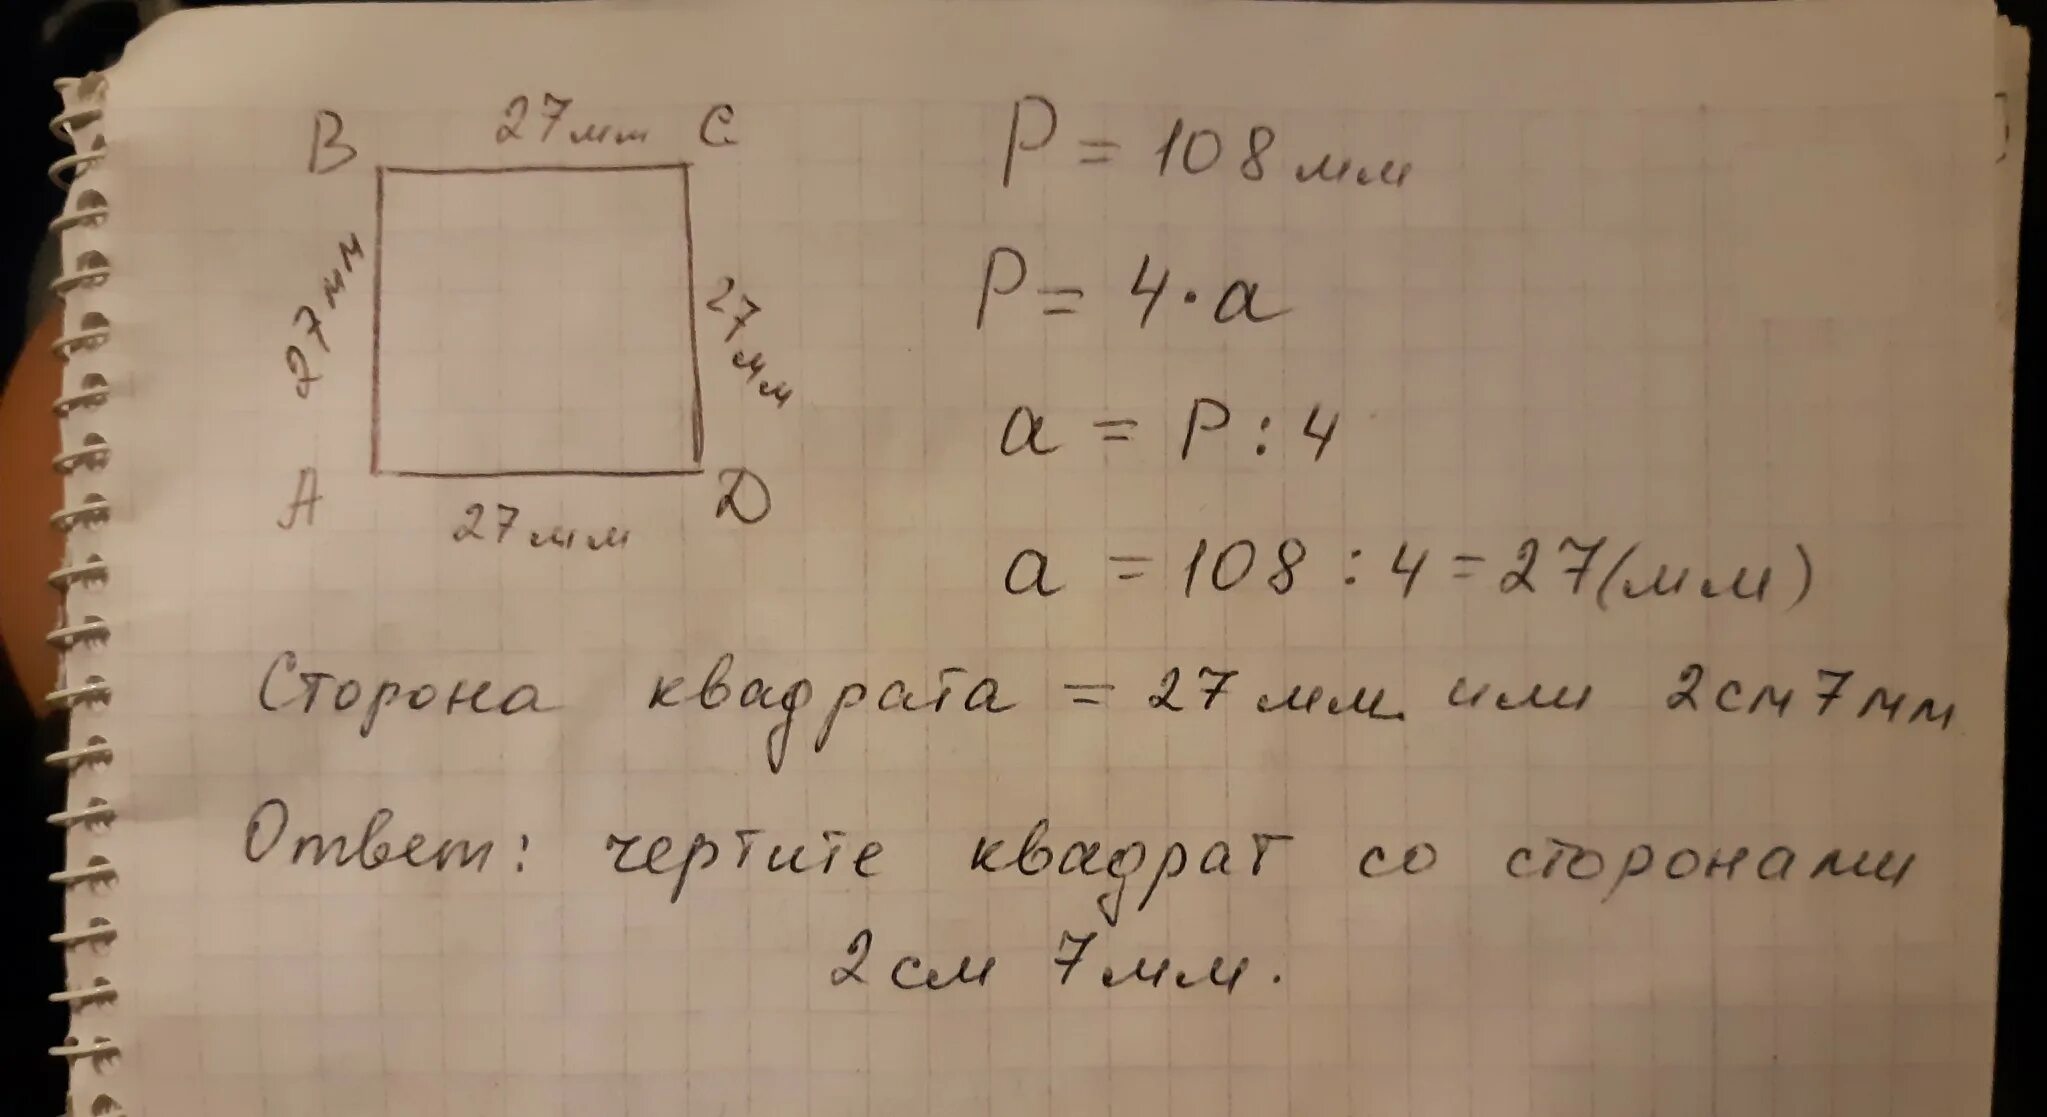 B 27мм C
27мм
27мм
A 27мм D
P = 108 мм
P = 4 · a
a = P : 4
a = 108 : 4 = 27 (мм)
Сторона квадрата = 27 мм. или 2 см 7 мм
Ответ: чертите квадрат со сторонами
2 см 7 мм.